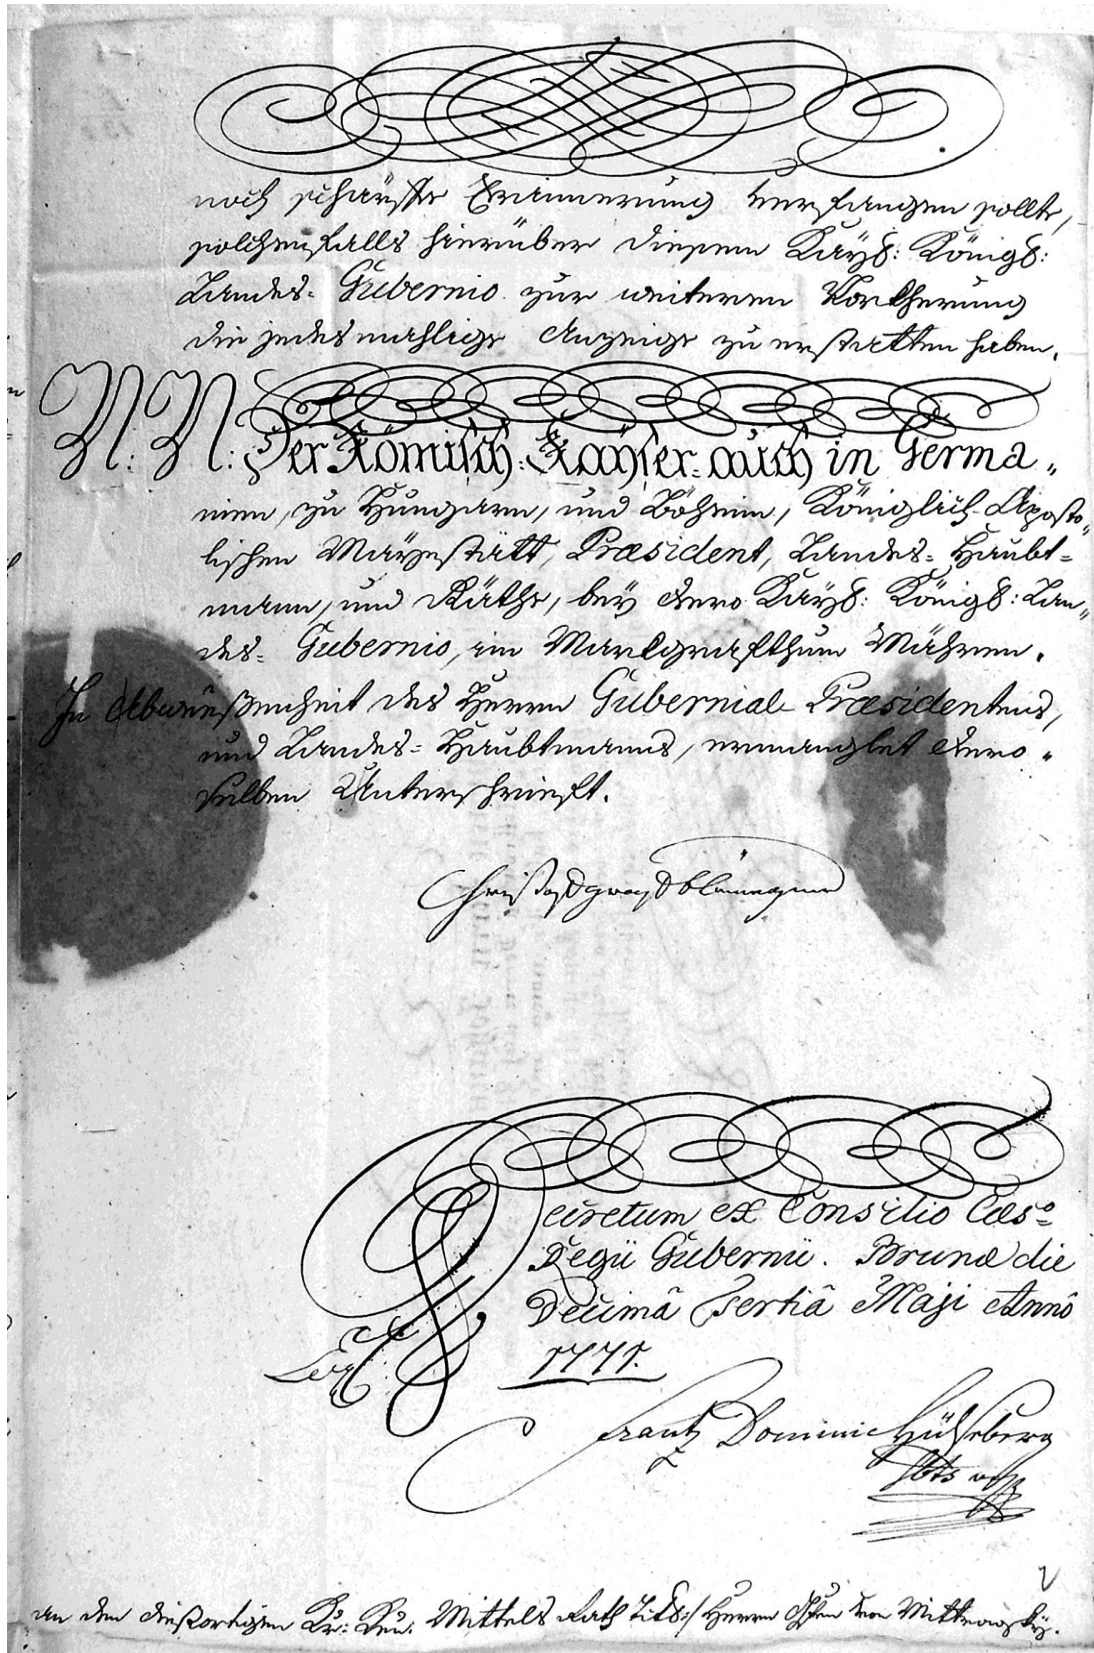 noch schärffte Erinnerung verfangen sollte,
solchenfalls hierüber diesem Kayß: Königß:
Landes- Gubernio zur weiteren Vorkherung
die jedesmahlige Anzeige zu erstatten haben.
N: N: Der Römisch: Kayser: auch in Germa„
nien, zu Hungarn, und Böheim, Königlich-Aposto„
lischen Mayestätt, Præsident, Landes= Haubt=
mann, und Räthe, bey dero Kayß: Königß: Lan„
des= Gubernio, im Marckgrafthum Mähren.
In Abweeßenheit des Herrn Gubernial- Præsidentens,
und Landes= Haubtmanns, ermanglet dero„
selben Unterschrieft.
Decretum ex Consilio Cæsº=
Regii Gubernii. Brunæ die
Decimâ Tertiâ Maji Annô
1771.
Frantz Dominic Hülseberg
an den dießortigen Mittels Rath Herrn von Mittrowsky.